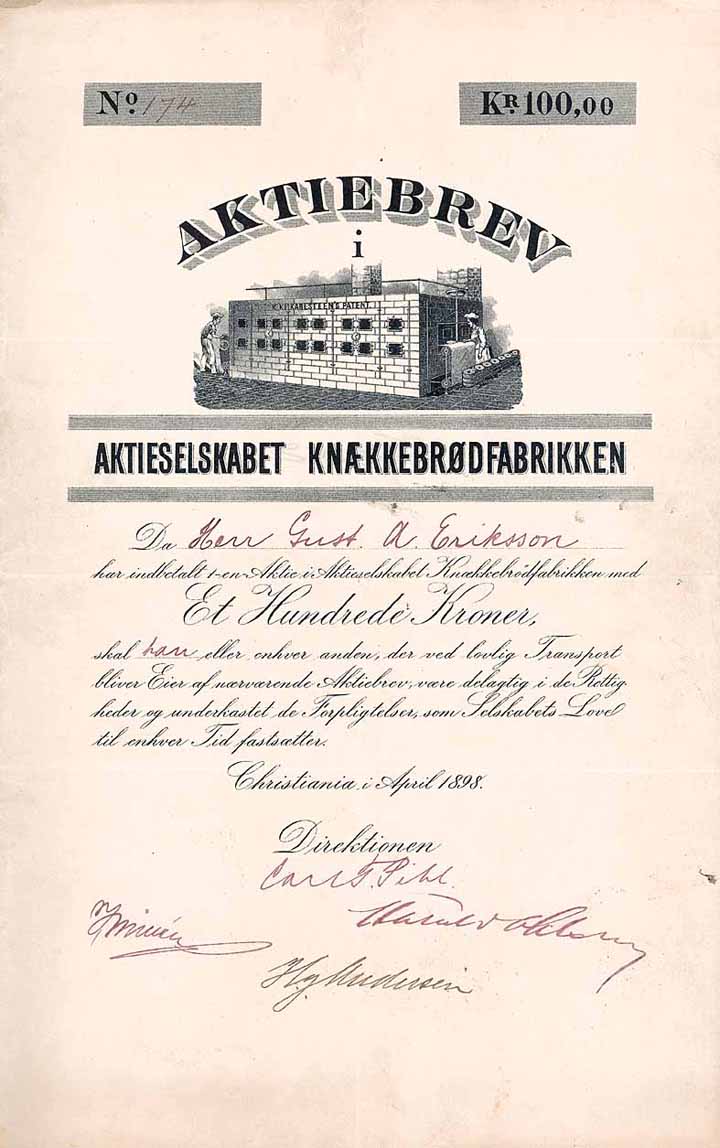 No. 174
KR. 100,00
AKTIEBREV
i
KARLSTEEN'S PATENT
AKTIESELSKABET KNÆKKEBRØDFABRIKKEN
Da Herr Gust. A. Eriksson
har indbetalt 1-en-Aktie i Aktieselskabet Knækkebrødfabrikken med
Et Hundrede Kroner,
skal han eller enhver anden, der ved lovlig Transport
bliver Eier af nærværende Aktiebrev, være delagtig i de Rettig
heder og underkastet de Forpligtelser, som Selskabets Love
til enhver Tid fastsætter.
Christiania i April 1898.
Direktionen
Carl F. Pihl.
Harald
H.g. Andersen